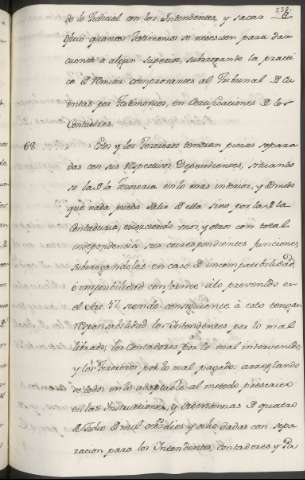 de lo Judicial con los Intendentes, y sacar
quantos testimonios se necesiten para dar
cuenta a algun Superior, subrogando la practica
comprobantes al Tribunal D Cuentas
por testimonios, en Certificaciones D los
Contadores.
68. Estos y los Tesoreros tendran piezas separadas
con sus respectivos Dependientes, situando
se la D la Tesoreria en lo mas interior, y D modo
que nada pueda salir D ella sino por la D la
Contaduria, exerciendo unos, y otros con total
independencia sus correspondientes funciones,
subrogandolas en caso D incompatibilidad,
o imposibilidad conforme a lo prevenido en
el Art. siendo consiguiente a esto tengan
responsabilidad los Intendentes por lo mal
librado, los Contadores por lo mal intervenido,
y los Tesoreros por lo mal pagado: arreglandose
todos en lo adaptable al metodo prescripto
en las Instrucciones, y Ordenanzas D quatro
D Julio D mil dadas con separacion
para los Intendentes, Contadores y